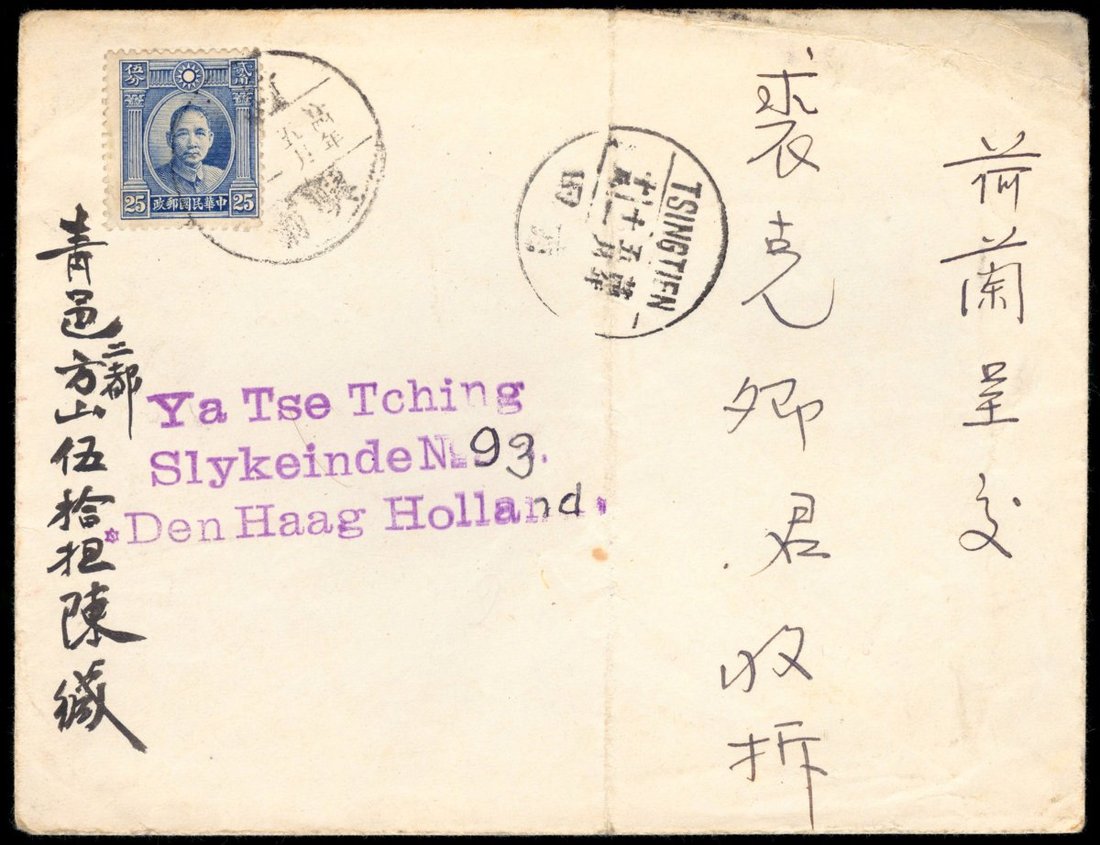 荷蘭呈交
裘克卿君收拆
TSINGTIEN
伍分
貳角
25
25
政郵國民華中
Ya Tse Tching
Slykeinde No 93.
Den Haag Holland.
青邑二都方山伍拾担陳緘